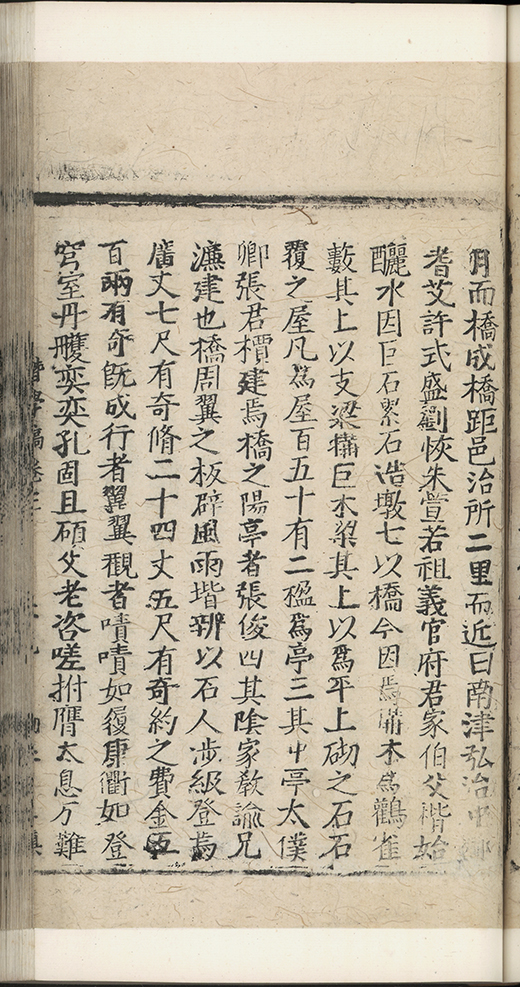 月而橋成橋距邑治所二里而近曰南津弘治中
耆艾許式盛劉恢朱萱若祖義官府君家伯父楷始
釃水因巨石絮石浩墩七以橋今因焉鬅木為鸛雀
藪其上以支梁構巨木梁其上以為平上砌之石石
覆之屋凡為屋百五十有二楹為亭三其中亭太僕
卿張君檟建焉橋之陽亭者張俊四其陰家教諭兄
濂建也橋周翼之板辟風雨堦辨以石人涉級登焉
廣丈七尺有奇脩二十四丈五尺有奇約之費金五
百兩有奇既成行者翼翼觀者嘖嘖如履康衢如登
穹室丹雘奕奕孔固且碩父老咨嗟拊膺太息乃難
稿卷